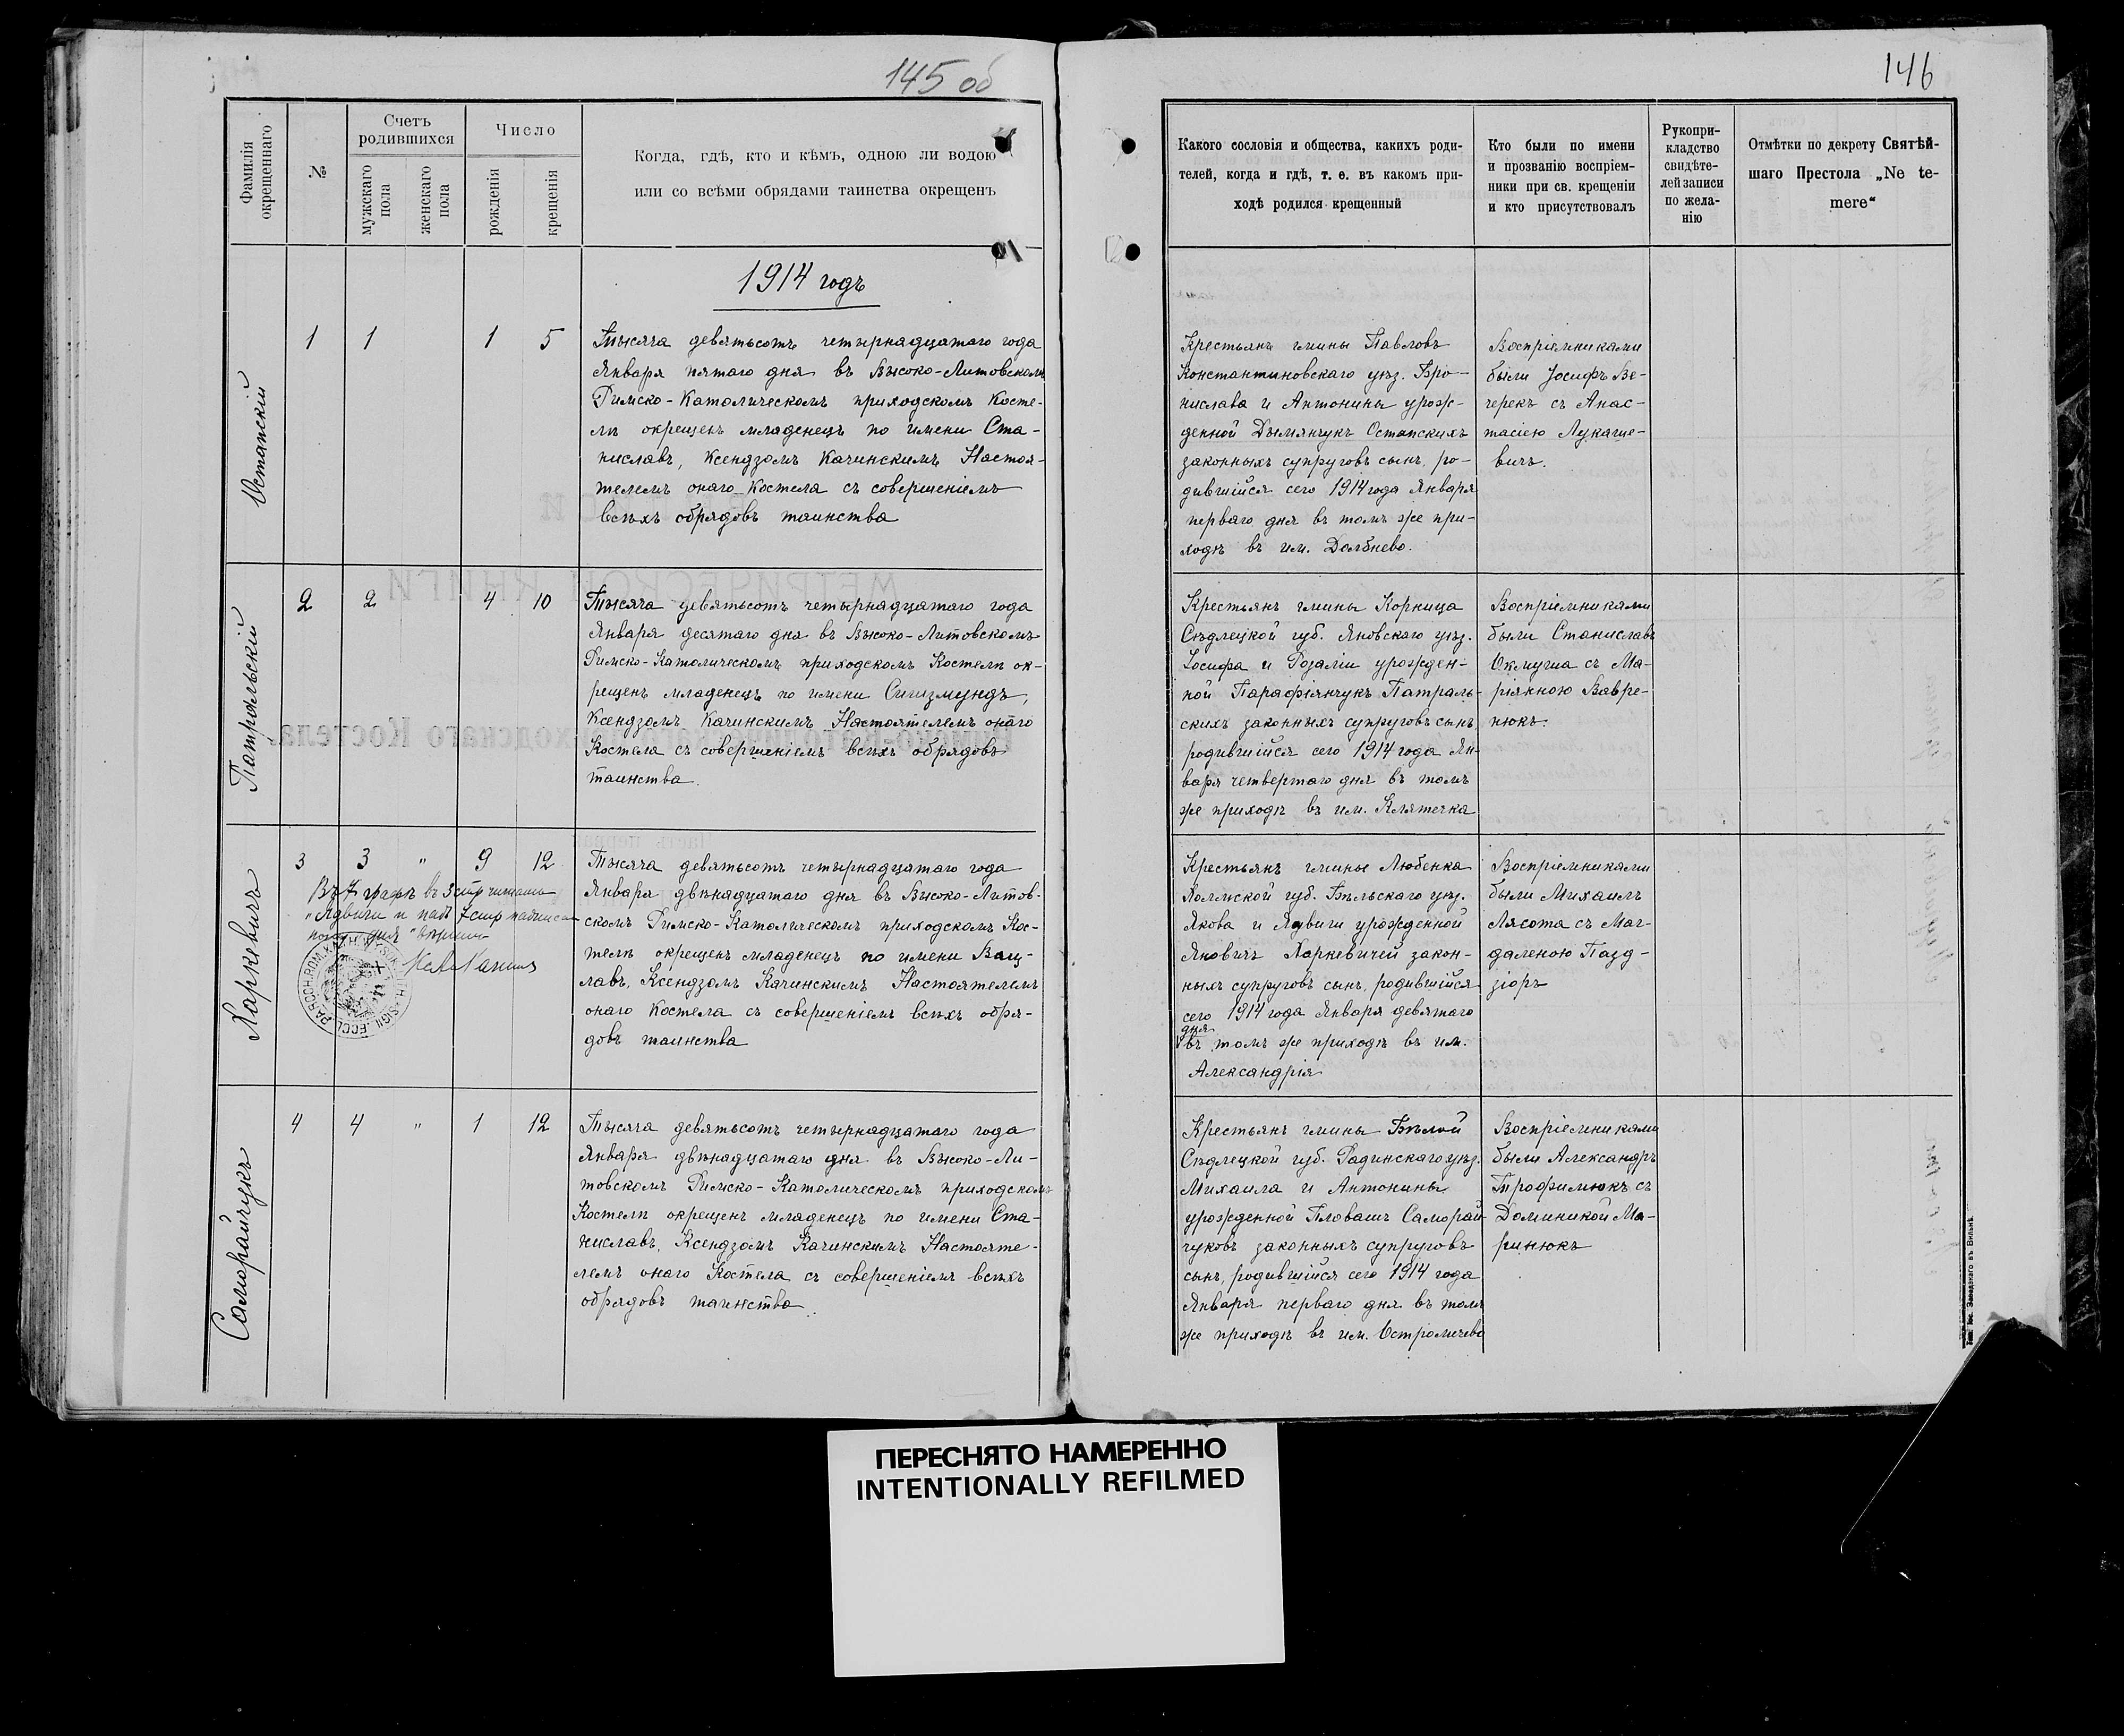 145 об
Фамилія
окрещеннаго
№
Счетъ
родившихся
мужскаго
пола
женскаго
пола
Число
рожденія
крещенія
Когда, гдѣ, кто и кѣмъ, одною ли водою
или со всѣми обрядами таинства окрещенъ
1914 годъ
Остапскій
1 1 1 5
Тысяча девятьсотъ четырнадцатаго года
Января пятаго дня въ Высоко-Литовскомъ
Римско-Католическомъ приходскомъ Косте-
лѣ окрещенъ младенецъ по имени Ста-
ниславъ, Ксендзомъ Качинскимъ Настоя-
телемъ онаго Костела съ совершеніемъ
всѣхъ обрядовъ таинства
Патральскій
2 2 4 10
Тысяча девятьсотъ четырнадцатаго года
Января десятаго дня въ Высоко-Литовскомъ
Римско-Католическомъ приходскомъ Костелѣ ок-
рещенъ младенецъ по имени Сигизмундъ,
Ксендзомъ Качинскимъ Настоятелемъ онаго
Костела съ совершеніемъ всѣхъ обрядовъ
таинства.
Харкевичъ
3 3 " 9 12
Въ 7 графѣ въ 3 стр читать
"Ядвиги и надъ 7 стр
дня"
Тысяча девятьсотъ четырнадцатаго года
Января двѣнадцатаго дня въ Высоко-Литов-
скомъ Римско-Католическомъ приходскомъ Кос-
телѣ окрещенъ младенецъ по имени Вац-
лавъ, Ксендзомъ Качинскимъ Настоятелемъ
онаго Костела съ совершеніемъ всѣхъ обря-
довъ таинства
Саморайчукъ
4 4 " 1 12
Тысяча девятьсотъ четырнадцатаго года
Января двѣнадцатаго дня въ Высоко-Ли-
товскомъ Римско-Католическомъ приходскомъ
Костелѣ окрещенъ младенецъ по имени Ста-
ниславъ, Ксендзомъ Качинскимъ Настояте-
лемъ онаго Костела съ совершеніемъ всѣхъ
обрядовъ таинства.
146
Какого сословія и общества, какихъ роди-
телей, когда и гдѣ, т. е. въ какомъ при-
ходѣ родился крещенный
Кто были по имени
и прозванію воспріем-
ники при св. крещеніи
и кто присутствовалъ
Рукопри-
кладство
свидѣте-
лей записи
по жела-
нію
Отмѣтки по декрету Святѣй-
шаго Престола „Ne te-
mere“
Крестьянъ гмины Павловъ
Константиновскаго уѣз. Бро-
нислава и Антонины урож-
денной Дымянчукъ Остапскихъ
законныхъ супруговъ сынъ, ро-
дившійся сего 1914 года Января
перваго дня въ томъ же при-
ходѣ въ им. Долбнево.
Воспріемниками
были Іосифъ Ве-
черекъ съ Анас-
тасіею Лукаше-
вичъ.
Крестьянъ гмины Корница
Сѣдлецкой губ. Яновскаго уѣз.
Іосифа и Розаліи урожден-
ной Парафіянчукъ Патраль-
скихъ законныхъ супруговъ сынъ,
родившійся сего 1914 года Ян-
варя четвертаго дня въ томъ
же приходѣ въ им. Клятечка
Воспріемниками
были Станиславъ
Оклуша съ Ма-
ріянною Вавре-
нюкъ.
Крестьянъ гмины Любенка
Холмской губ. Бѣльскаго уѣз.
Якова и Ядвиги урожденной
Яновичъ Харкевичей закон-
ныхъ супруговъ сынъ, родившійся
сего 1914 года Января девятаго
дня
въ томъ же приходѣ въ им.
Александрія
Воспріемниками
были Михаилъ
Лясота съ Маг-
даленою Пазд-
зіоръ
Крестьянъ гмины Бѣлой
Сѣдлецкой губ. Радинскаго уѣз.
Михаила и Антонины
урожденной Пловашъ Саморай-
чуковъ законныхъ супруговъ
сынъ, родившійся сего 1914 года
Января перваго дня въ томъ
же приходѣ въ им. Остромечево
Воспріемниками
были Александръ
Трофимюкъ съ
Доминикой Ма-
ринюкъ
Тип. Іос. Завадзкаго въ Вильнѣ.
ПЕРЕСНЯТО НАМЕРЕННО
INTENTIONALLY REFILMED